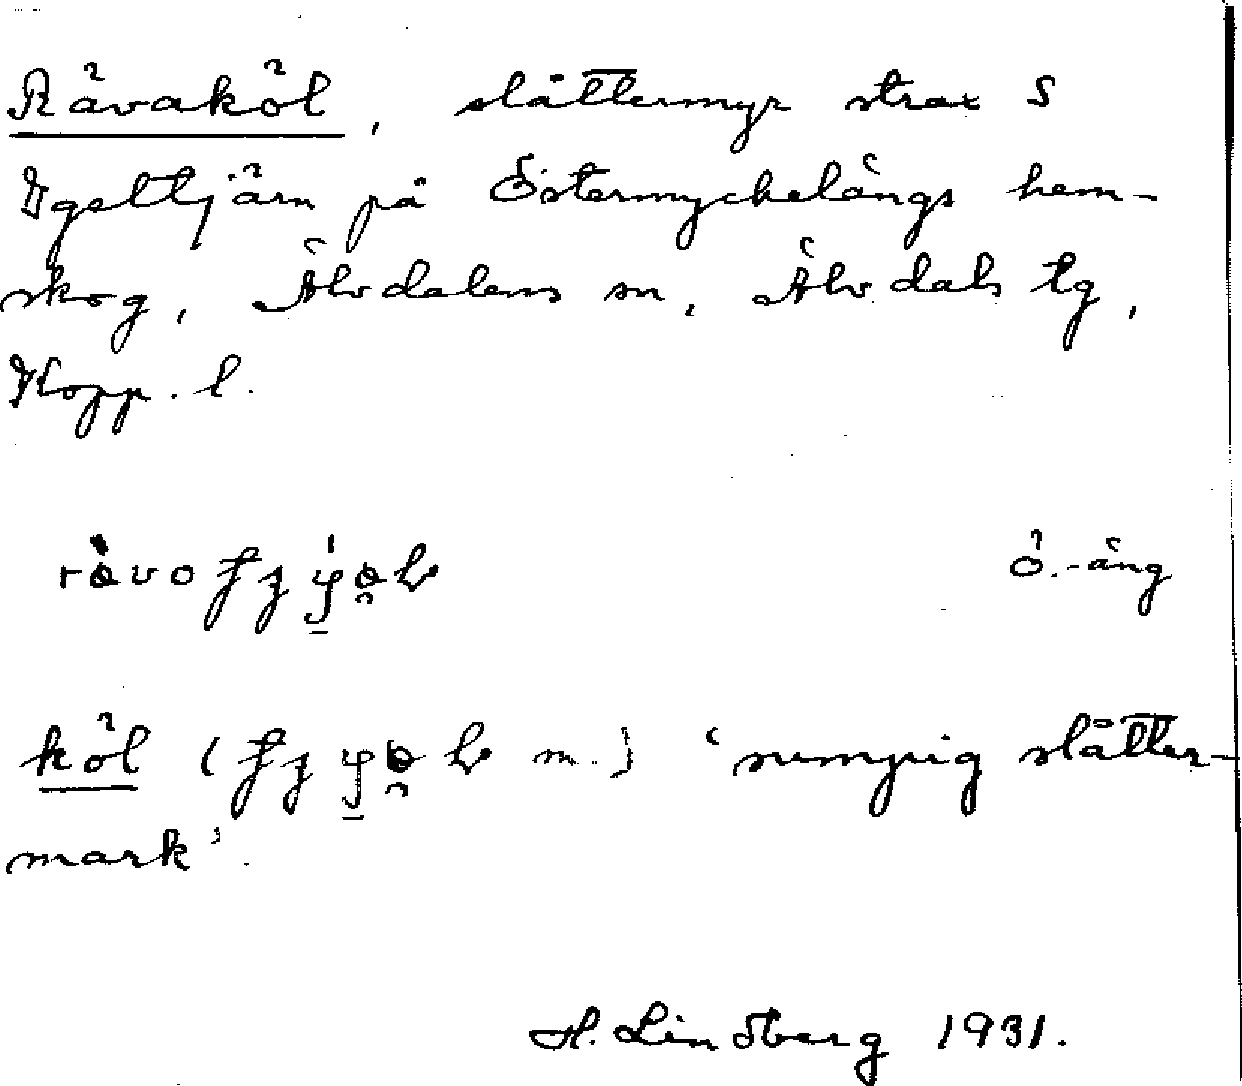 Rävaköl, slåttermyr strax S
Igeltjärn på Östermyckelängs hem-
skog, Älvdalens sn, Älvdals tg,
Kopp. l.
Ö.-äng
köl ( m.) 'sumpig slåtter-
mark'.
H. Lindberg 1931.